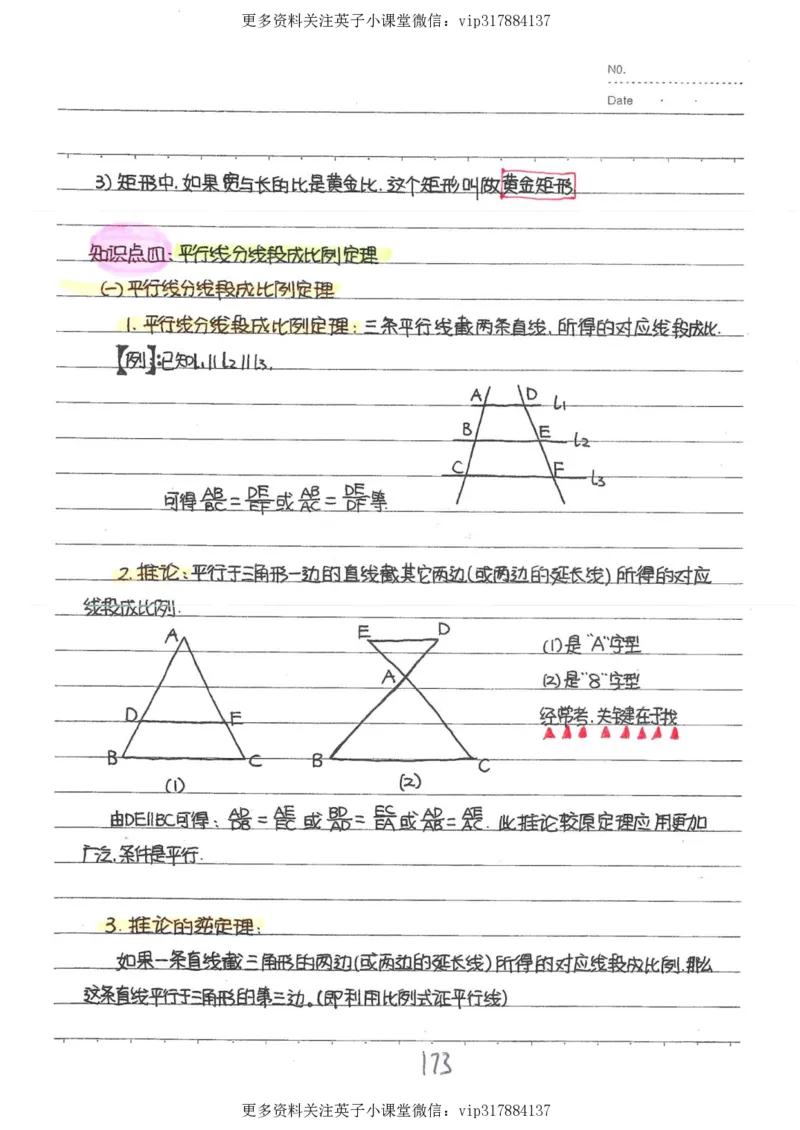 更多资料关注英子小课堂微信：vip317884137
NO.
Date
3）矩形中，如果宽与长的比是黄金比，这个矩形叫做黄金矩形
知识点四：平行线分线段成比例定理
(一)平行线分线段成比例定理
1. 平行线分线段成比例定理：三条平行线截两条直线，所得的对应线段成比.
【例】：已知l1∥l2∥l3.
A D l1
B E l2
C F l3
可得 AB/BC = DE/EF 或 AB/AC = DE/DF 等.
2. 推论：平行于三角形一边的直线截其它两边(或两边的延长线)所得的对应
线段成比例.
A E D
(1)是"A"字型
A (2)是"8"字型
D E 经常考，关键在于找
B C B C
(1) (2)
由DE∥BC可得：AD/DB = AE/EC 或 BD/AD = EC/EA 或 AD/AB = AE/AC. 此推论较原定理应用更加
广泛，条件是平行.
3. 推论的逆定理：
如果一条直线截三角形的两边(或两边的延长线)所得的对应线段成比例，那么
这条直线平行于三角形的第三边。(即利用比例式证平行线)
173
更多资料关注英子小课堂微信：vip317884137